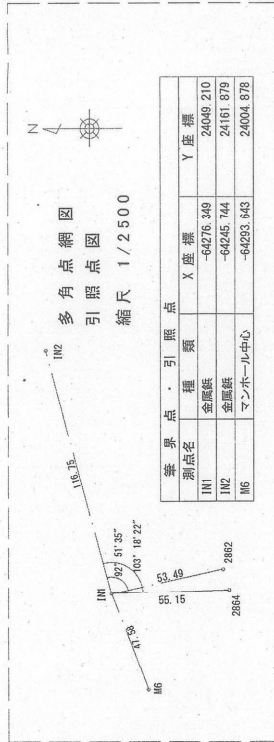 N
多角点網図
引照点図
縮尺 1/2500
IN2
116.75
IN1
92° 51′35″
103° 18′22″
47.58
M6
53.49
55.15
2862
2864
筆界点・引照点
測点名 種類 X座標 Y座標
IN1 金属鋲 -64276.349 24049.210
IN2 金属鋲 -64245.744 24161.879
M6 マンホール中心 -64293.643 24004.878